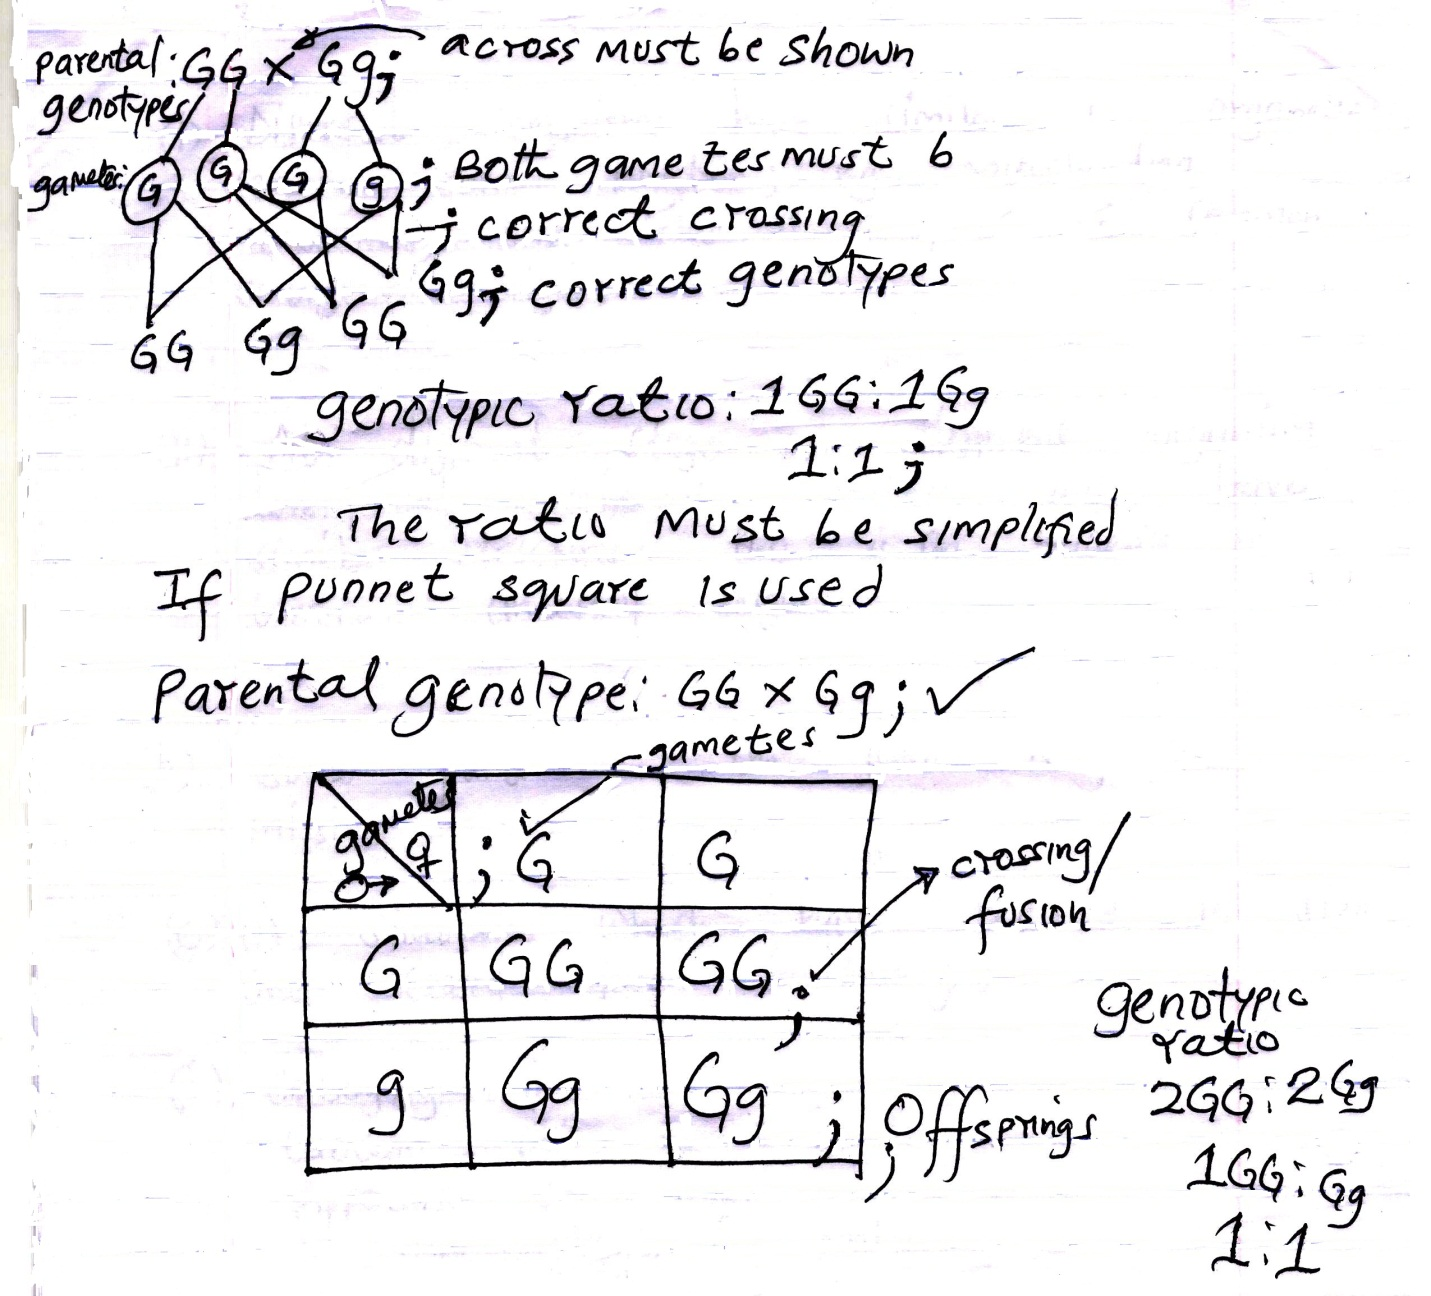 parental: GG x Gg; across must be shown
genotypes
gametes: G G G g ; Both gametes must b
; correct crossing
GG Gg GG Gg; correct genotypes
genotypic ratio: 1GG:1Gg
1:1;
The ratio must be simplified
If punnet square is used
Parental genotype: GG x Gg; ✓
gametes
gametes ♀ ; G G
♂
crossing/
fusion
G GG GG ;
g Gg Gg ; ; Offsprings
genotypic
ratio
2GG:2Gg
1GG:Gg
1:1